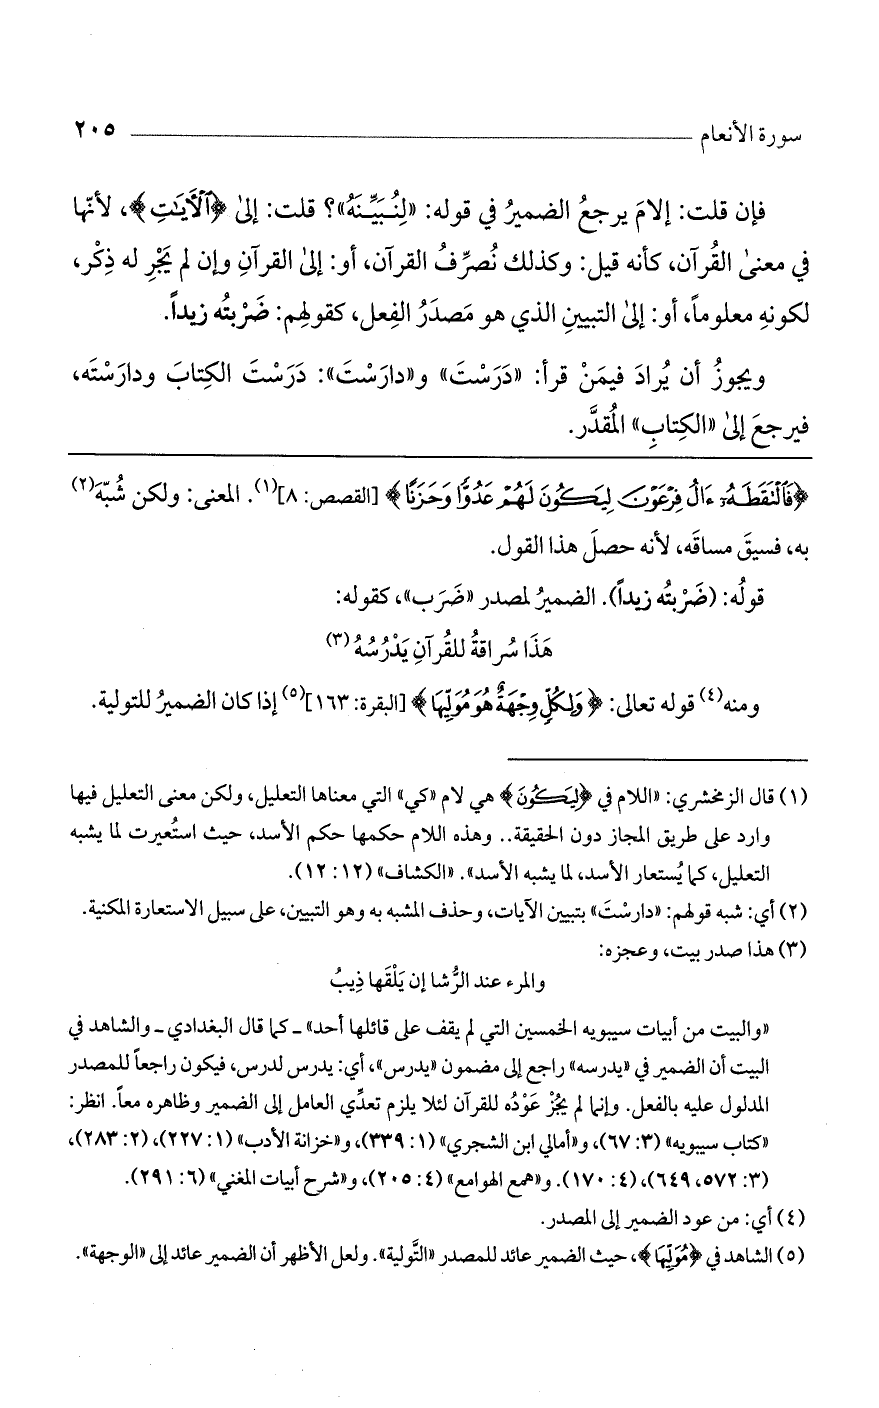 سورة الأنعام ٢٠٥
فإن قلت: إلامَ يرجعُ الضميرُ في قوله: «لِنُبَيِّنَهُ»؟ قلت: إلىٰ ﴿ٱلْأَيَٰتِ﴾، لأنّها
في معنىٰ القُرآن، كأنه قيل: وكذلك نُصرِّفُ القرآن، أو: إلىٰ القرآنِ وإن لم يَجْرِ له ذِكْر،
لكونهِ معلوماً، أو: إلىٰ التبيينِ الذي هو مَصدَرُ الفِعل، كقولهِم: ضَرْبتُه زيداً.
ويجوزُ أن يُرادَ فيمَنْ قرأ: «دَرَسْتَ» و«دارَسْتَ»: دَرَسْتَ الكِتابَ ودارَسْتَه،
فيرجعَ إلىٰ «الكِتابِ» المُقدَّر.
﴿فَٱلْتَقَطَهُۥٓ ءَالُ فِرْعَوْنَ لِيَكُونَ لَهُمْ عَدُوًّا وَحَزَنًا﴾ [القصص: ٨](١). المعنى: ولكن شُبِّهَ(٢)
به، فسيقَ مساقَه، لأنه حصلَ هذا القول.
قولُه: (ضَرْبتُه زيداً). الضميرُ لمصدر «ضَرَب»، كقوله:
هَذَا سُراقةُ للقُرآنِ يَدْرُسُهُ(٣)
ومنه(٤) قوله تعالى: ﴿وَلِكُلٍّ وِجْهَةٌ هُوَ مُوَلِّيهَا﴾ [البقرة: ١٦٣](٥) إذا كان الضميرُ للتولية.
(١) قال الزمخشري: «اللام في ﴿لِيَكُونَ﴾ هي لام «كي» التي معناها التعليل، ولكن معنى التعليل فيها
وارد على طريق المجاز دون الحقيقة.. وهذه اللام حكمها حكم الأسد، حيث استُعيرت لما يشبه
التعليل، كما يُستعار الأسد، لما يشبه الأسد». «الكشاف» (١٢: ١٢).
(٢) أي: شبه قولهم: «دارسْتَ» بتبيين الآيات، وحذف المشبه به وهو التبيين، على سبيل الاستعارة المكنية.
(٣) هذا صدر بيت، وعجزه:
والمرء عند الرُّشا إن يَلْقَها ذِيبُ
«والبيت من أبيات سيبويه الخمسين التي لم يقف على قائلها أحد» ـ كما قال البغدادي ـ والشاهد في
البيت أن الضمير في «يدرسه» راجع إلى مضمون «يدرس»، أي: يدرس لدرس، فيكون راجعاً للمصدر
المدلول عليه بالفعل. وإنما لم يَجُزْ عَوْدُه للقرآن لئلا يلزم تعدِّي العامل إلى الضمير وظاهره معاً. انظر:
«كتاب سيبويه» (٣: ٦٧)، و«أمالي ابن الشجري» (١: ٣٣٩)، و«خزانة الأدب» (١: ٢٢٧)، (٢: ٢٨٣)،
(٣: ٥٧٢، ٦٤٩)، (٤: ١٧٠). و«همع الهوامع» (٤: ٢٠٥)، و«شرح أبيات المغني» (٦: ٢٩١).
(٤) أي: من عود الضمير إلى المصدر.
(٥) الشاهد في ﴿مُوَلِّيهَا﴾، حيث الضمير عائد للمصدر «التَّولية». ولعل الأظهر أن الضمير عائد إلى «الوجهة».